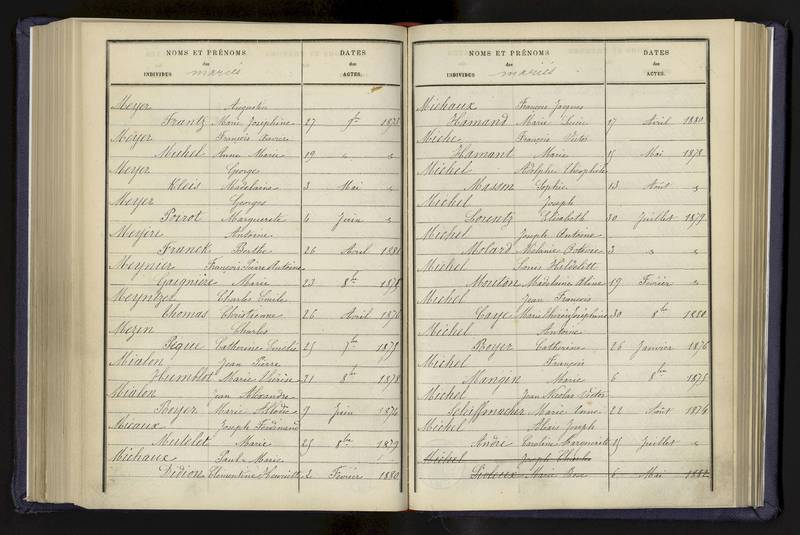 NOMS ET PRÉNOMS DATES
des des
INDIVIDUS mariés ACTES.
Meyer Augustin
Frantz Marie Joséphine 27 9bre 1878
Meyer François Xavier
Michel Anne Marie 19 " "
Meyer Georges
Kleis Madelaine 3 Mai "
Meyer Georges
Poirot Marguerite 4 Juin "
Meyère Antoine
Franck Berthe 26 Avril 1881
Meynier François Pierre Antoine
Gaignière Marie 23 8bre 1878
Meyntzer Charles Emile
Thomas Christienne 26 Avril 1876
Mezin Charles
Pêque Catherine 25 7bre 1875
Mialon Jean Pierre
Humblot Marie 31 8bre 1878
Mialon Jean Alexandre
Boyer Marie Mélodie 9 Juin 1874
Miaux Joseph Ferdinand
Mutelet Marie 25 8bre 1879
Michaux Paul Marie
Didion Clémentine Henriette 2 Février 1880
NOMS ET PRÉNOMS DATES
des des
INDIVIDUS mariés ACTES.
Michaux François Jacques
Hamand Marie 17 Avril 1880
Miche François Victor
Hamant Marie 15 Mai 1878
Michel Adolphe Théophile
Masson Sophie 13 Août "
Michel Joseph
Lorentz Elisabeth 30 Juillet 1879
Michel Joseph Antoine
Molard Mélanie Octavie 3 " "
Michel Louis
Mouton Madelaine Aline 19 Février "
Michel Jean François
Caye Marie Thérèse Joséphine 30 8bre 1880
Michel Antoine
Boyer Catherine 26 Janvier 1876
Michel François
Mangin Marie 6 8bre 1875
Michel Jean Nicolas Victor
Schiffmacher Marie Anne 22 Août 1874
Michel Alexis Joseph
André Caroline Marguerite 25 Juillet "
Michel Joseph Charles
Marie Rose 6 Mai 1882